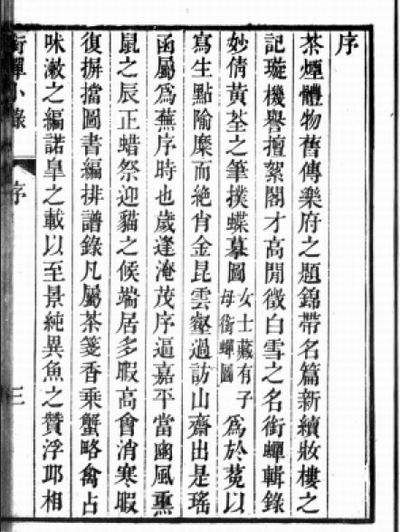 序
茶煙體物舊傳樂府之題錦帶名篇新續妝樓之
記璇機譽擅絮閣才高閒徵白雪之名銜蟬輯錄
妙倩黃荃之筆撲蝶摹圖女士藏有子
母銜蟬圖爲於菟以
寫生點隃糜而絕肖金昆雲壑過訪山齋出是瑤
函屬爲蕪序時也歲逢淹茂序逼嘉平當豳風熏
鼠之辰正蜡祭迎貓之候端居多暇高會消寒暇
復摒擋圖書編排譜錄凡屬茶箋香乘蟹略禽占
咪漱之編諾皐之載以至景純異魚之贊浮邱相
銜蟬小錄 序 三